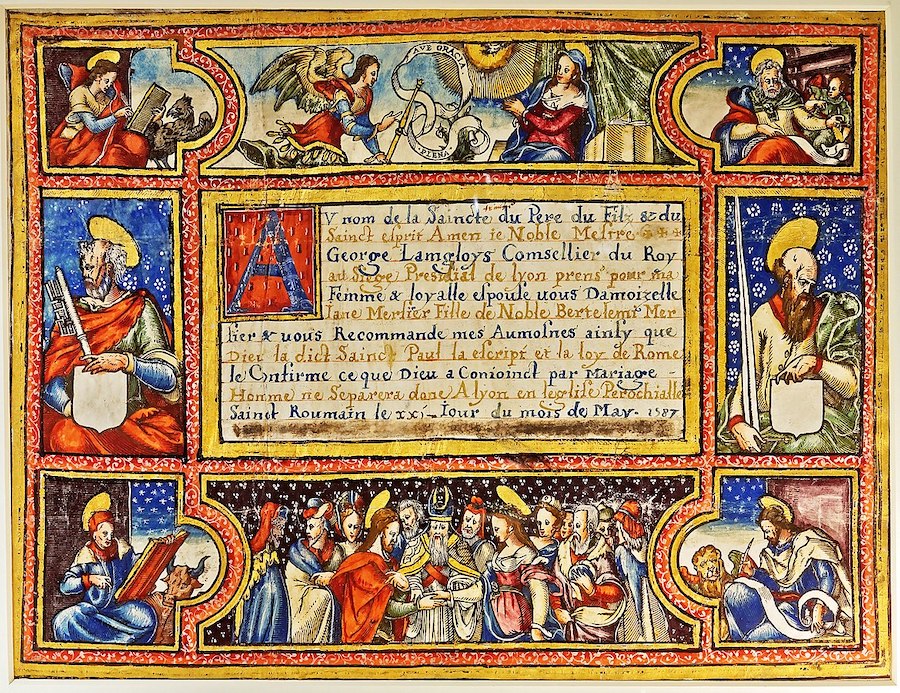 AVE GRACIA
PLENA
AV nom de la Saincte du Pere du Filz & du
Sainct esprit Amen ie Noble Mestre
George Lamgloys Comsellier du Roy
au Siege Presidial de lyon prens pour ma
Femme & loyalle espouse uous Damoizelle
Iane Merlier Fille de Noble Bertelemi Mer
lier & uous Recommande mes Aumosnes ainsy que
Dieu la dict Sainct Paul la escript et la loy de Rome
le Confirme ce que Dieu a Conioinct par Mariage
Homme ne Separera donc A lyon en leglise Perochialle
Sainct Roumain le xxi Iour du mois de May. 1587